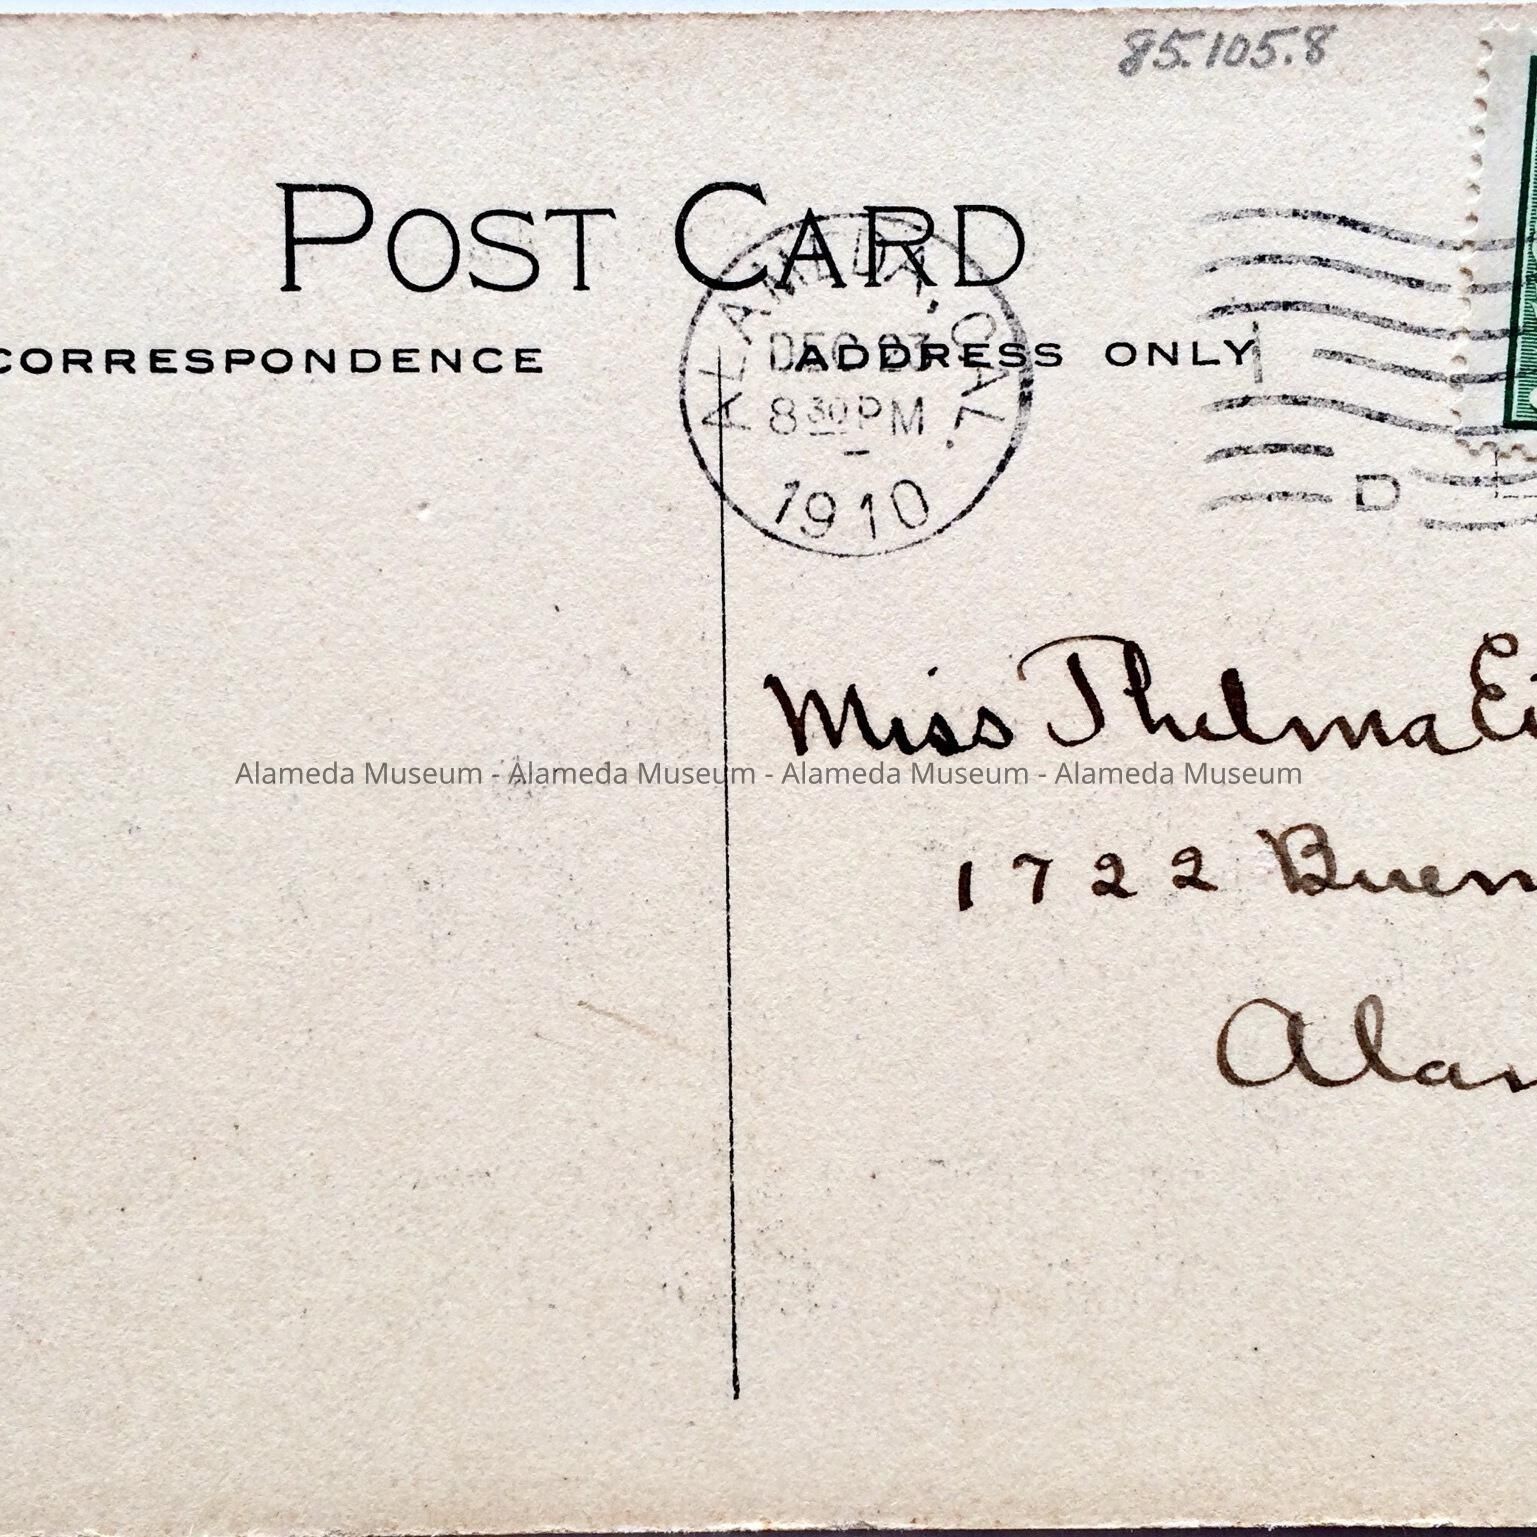 85.105.8
POST CARD
CORRESPONDENCE
ADDRESS ONLY
ALAMEDA, CAL.
DEC 23
8 30 PM
1910
D
Miss Thelma Ei
Alameda Museum - Alameda Museum - Alameda Museum - Alameda Museum
1722 Buen
Alam